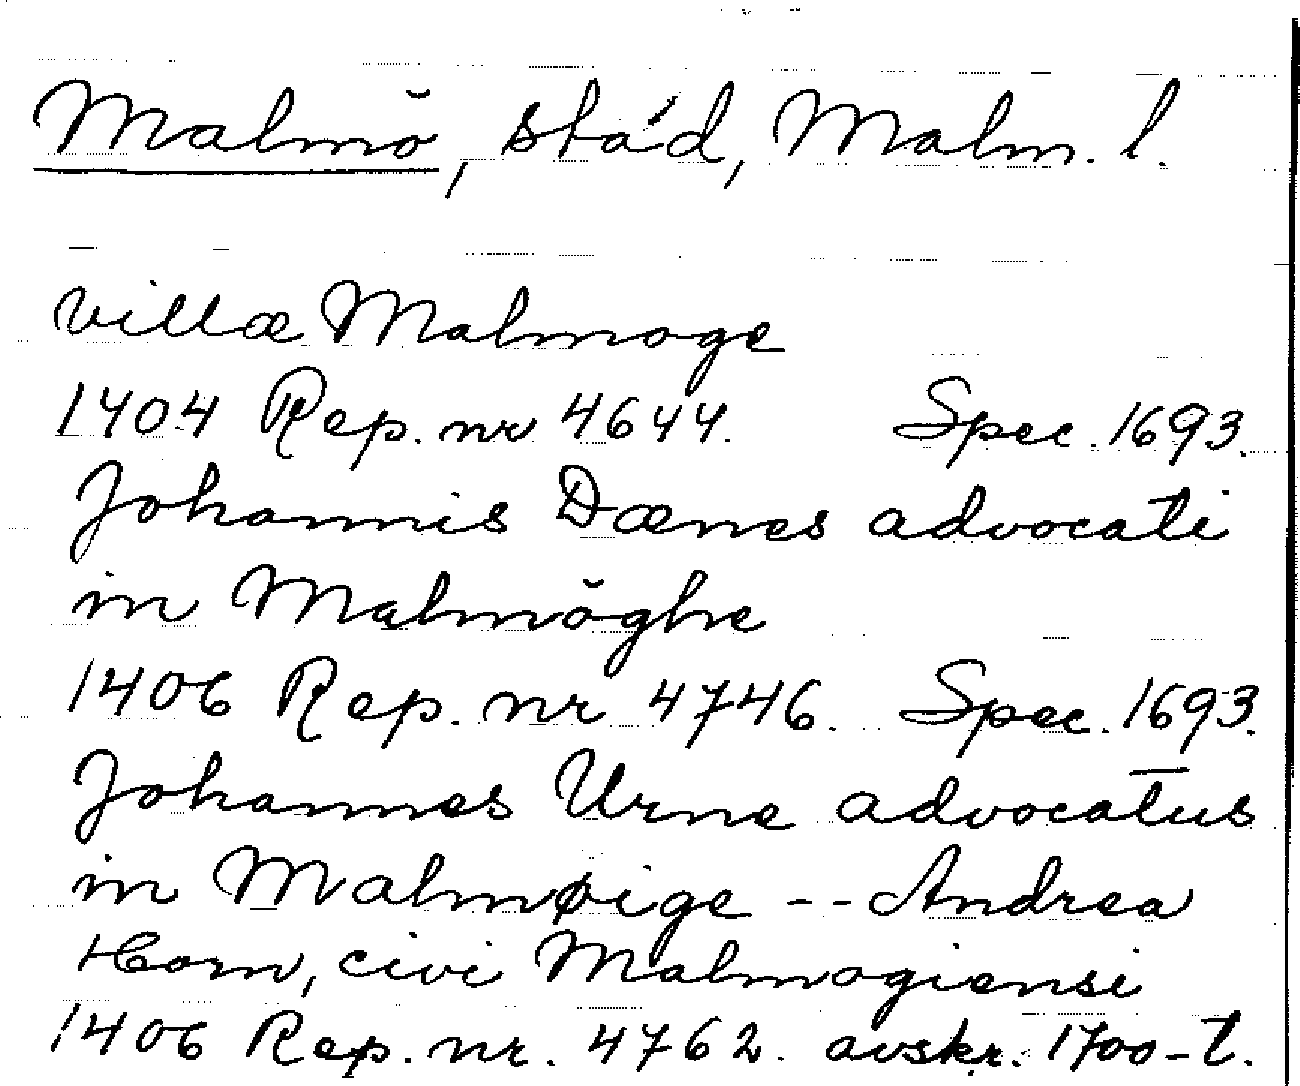 Malmö, stad, Malm. l.
villæ Malmoge
1404 Rep. nr 4644. Spec. 1693.
Johannis Dænes advocati
in Malmöghe
1406 Rep. nr 4746. Spec. 1693.
Johannes Urne advocatus
in Malmøige -- Andrea
Horn, civi Malmogiensi
1406 Rep. nr. 4762. avskr. 1700-t.